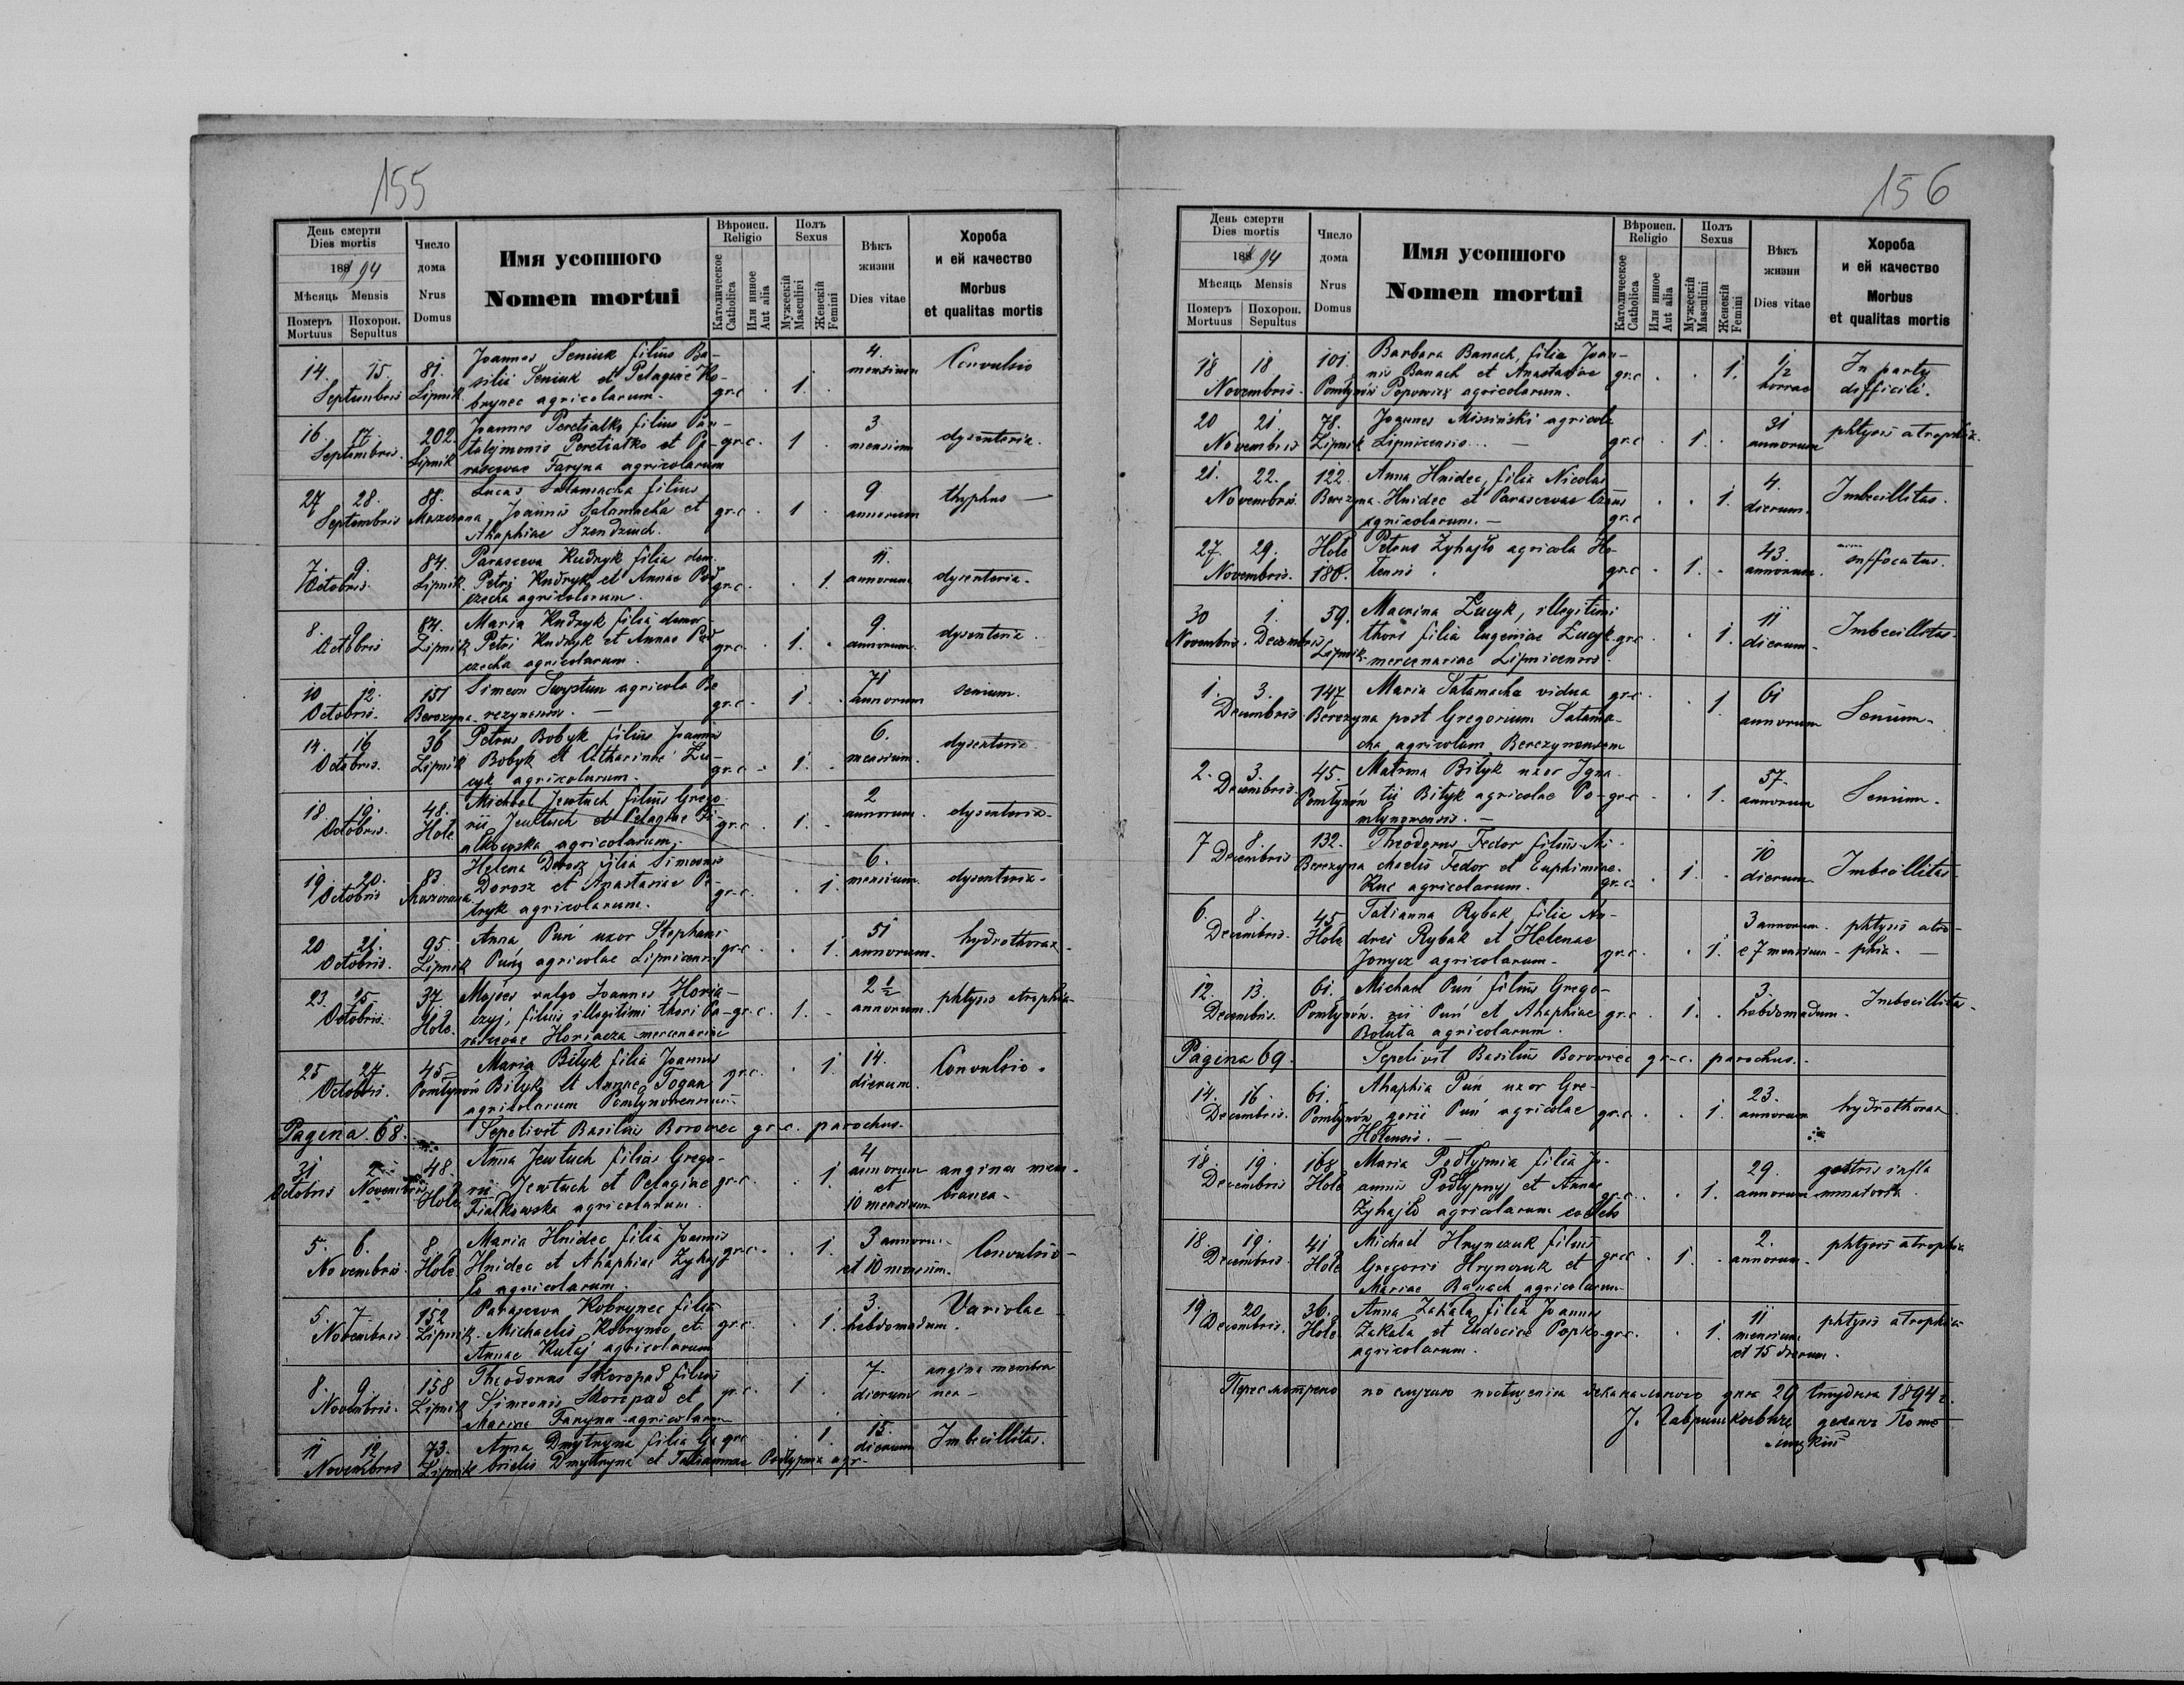 155
День смерти
Dies mortis
188 94
Мѣсяць Mensis
Померъ Похорон.
Mortuus Sepultus
Число
дома
Nrus
Domus
Имя усопшого
Nomen mortui
Вѣроисп.
Religio
Католическое
Catholica
Или инное
Aut alia
Полъ
Sexus
Мужескій
Masculini
Женскій
Femini
Вѣкъ
жизни
Dies vitae
Хороба
и ей качество
Morbus
et qualitas mortis
14. 15. 81. Joannes Seniuk filius Ba- 4. Convulsio
Septembris Lipnik silii Seniuk et Pelagiae Ko- gr.c. 1. mensium
brynec agricolarum.
16. 17. 202. Joannes Peretiatko filius Pan- 3 dysenteria.
Septembris. Lipnik talejmonis Peretiatko et Pa- gr.c. 1 mensium
rascevae Faryna agricolarum
27 28. 88. Lucas Salamacha filius 9 thyphus —
Septembris Joannis Salamacha et gr.c 1 annorum
Ahaphiae
7. 9. 84. Parasceva Kudryk filia dem. 11. dysenteria.
Octobris. Lipnik. Petri Kudryk et Annae Pod gr.c. 1. annorum
czecha agricolarum.
8. 9. 84. Maria Kudryk filia 9. dysenteria.
Octobris Lipnik Petri Kudryk et Annae Pod gr.c. 1. annorum
czecha agricolarum.
10 12. 151 Simeon agricola Be 71 senium.
Octobris. Berezyna rezynensis. — gr.c. 1 annorum
14. 16 36 Petrus Bobyk filius Joannis 6. dysenteria
Octobris. Lipnik Bobyk et Catharinae Zu- gr.c. 1. mensium.
cyk agricolarum.
18 19. 48. Michael Jewtuch filius Grego- 2 dysenteria.
Octobris. Hole rii Jewtuch et Pelagiae Fi- gr.c. 1. annorum.
alkowska agricolarum.
19. 20. 83 Helena Dorosz filia Simeonis 6. dysenteria.
Octobris Dorosz et Anastasiae Pe- gr.c. 1. mensium.
tryk agricolarum.
20 21. 95. Anna Puń uxor Stephani 51 hydrothorax.
Octobris. Lipnik Puń agricolae Lipnicensis gr.c. 1. annorum.
23. 25 37. Mojses vulgo Joannes Horia- 2 1/2 phtysis atrophia
Octobris. Hole. czyj, filius illegitimi thori Pa- gr.c. 1. annorum.
rascevae Horiacza mercenariae
25 27 45 Maria Bilyk filia Joannis 14. Convulsio.
Octobris. Pomłynów Bilyk et Annae Togan gr.c. 1 dierum.
agricolarum Pomłynovensium
Pagina 68. Sepelivit Basilius Borowiec gr.c. parochus.
31 2 48. Anna Jewtuch filia Grego- 4 angina mem-
Octobris Novembris Hole rii Jewtuch et Pelagiae gr.c. 1. annorum branea.
Fialkowska agricolarum. et 10 mensium
5. 6. 8 Maria Hnidec filia Joannis 3 annorum Convulsio
Novembris. Hole Hnidec et Ahaphiae Zyhaj- gr.c. 1. et 10 mensium.
ło agricolarum.
5. 7 152 Parasceva Kobrynec filia 3. Variolae
Novembris Lipnik. Michaelis Kobrynec et gr.c. 1. hebdomadum.
Annae Kułaj agricolarum
8. 9. 158 Theodorus Skoropad filius 7. angina membra
Novembris. Lipnik Simeonis Skoropad et gr.c. 1 dierum nea.
Marina Faryna agricolarum
11 12 73. Anna Dmytryna filia Ga gr.c 1. 15. Imbecillitas.
Novembris Lipnik brielis Dmytryna et Tatiannae Podłypnia agr. dierum
156
День смерти
Dies mortis
188 94
Мѣсяць Mensis
Померъ Похорон.
Mortuus Sepultus
Число
дома
Nrus
Domus
Имя усопшого
Nomen mortui
Вѣроисп.
Religio
Католическое
Catholica
Или инное
Aut alia
Полъ
Sexus
Мужескій
Masculini
Женскій
Femini
Вѣкъ
жизни
Dies vitae
Хороба
и ей качество
Morbus
et qualitas mortis
18 18 101. Barbara Banach, filia Joan- 1/2 In partu
Novembris. Pomłynów nis Banach et Anastasiae gr.c. 1. horrae difficili.
Popowicz agricolarum.
20 21. 78. Joannes Missiński agricola 31 phtysis atrophia.
Novembris Lipnik Lipnicensis. — gr.c 1. annorum
21. 22. 122 Anna Hnidec, filia Nicolai 4. Imbecillitas.
Novembris. Berezyna Hnidec et Parascevae 1. dierum.
agricolarum. — gr.c
27. 29. Hole Petrus Zyhajło agricola Ho- 43. suffocatus.
Novembris. 180. lensis. gr.c 1. annorum.
30 1. 39. Macrina Zucyk, illegitimi 11 Imbecillitas.
Novembris. Decembris Lipnik thori filia Eugeniae Zucyk gr.c. 1. dierum.
mercenariae Lipnicensis.
1. 3. 147 Maria Salamacha vidua gr.c. 61 Senium.
Decembris Berezyna post Gregorium Salama- 1. annorum
cha agricolam Berezynensem
2. 3. 45. Matrona Bilyk uxor Igna- 57. Senium.
Decembris. Pomłynów tii Bilyk agricolae Po- gr.c 1. annorum
młynovensis. —
7 8. 132. Theodorus Fedor filius Mi- 10 Imbecillitas.
Decembris Berezyna chaelis Fedor et Euphimiae 1. dierum
Kuc agricolarum. gr.c.
6. 8. 45 Tatianna Rybak filia An- 3 annorum. phtysis atro-
Decembris. Hole drei Rybak et Helenae gr.c. 1. e 7 mensium. phia. —
Jonycz agricolarum.
12. 13. 61. Michael Puń filius Grego- 3. Imbecillitas.
Decembris Pomłynów. rii Puń et Ahaphiae gr.c. 1. hebdomadum.
Bołuta agricolarum.
Pagina 69. Sepelivit Basilius Borowiec gr.c. parochus.
14. 16. 61. Ahaphia Puń uxor Gre- 23. hydrothorax
Decembris. Pomłynów gorii Puń agricolae gr.c. 1. annorum
Holensis. —
18. 19. 168 Maria Podłypnia filia Jo- 29. gastris infla
Decembris Hole annis Podłypnyj et Annae gr.c. 1. annorum mmatoria.
Zyhajło agricolarum coelebs
18. 19. 41 Michael Hrynczuk filius 2. phtysis atrophia
Decembris. Hole Gregorii Hrynczuk et gr.c. 1. annorum.
Mariae Banach agricolarum
19. 20. 36. Anna Zakala filia Joannis 11 phtysis atrophia
Decembris. Hole Zakala et Eudociae Popko gr.c. 1. mensium
agricolarum. et 15 dierum.
Пересмотрено по случаю посѣщенія деканального дня 29 Студня 1894 г.
деканъ